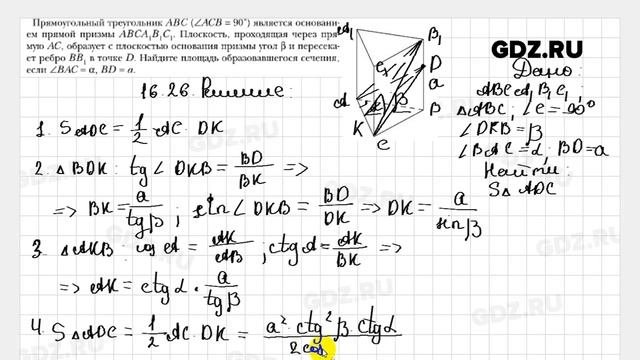 Прямоугольный треугольник ABC (∠ACB = 90°) является основани-
ем прямой призмы ABCA₁B₁C₁. Плоскость, проходящая через пря-
мую AC, образует с плоскостью основания призмы угол β и пересека-
ет ребро BB₁ в точке D. Найдите площадь образовавшегося сечения,
если ∠BAC = α, BD = a.
16.26. Решение:
GDZ.RU
Дано:
ABCA₁B₁C₁
△ABC; ∠C = 90°
∠DKB = β
∠BAC = α; BD = a
Найти:
S△ADC
A₁
B₁
C₁
D
a
A
β
B
K
C
1. S△ADC = 1/2 AC · DK
2. △BDK: tg∠DKB = BD/BK =>
=> BK = a/tgβ ; sin∠DKB = BD/DK => DK = a/sinβ
3. △AKB: cos α = AK/AB ; ctg α = AK/BK =>
=> AK = ctg α · a/tgβ
4. S△ADC = 1/2 AC · DK = a² · ctg²β · ctgα / 2cos